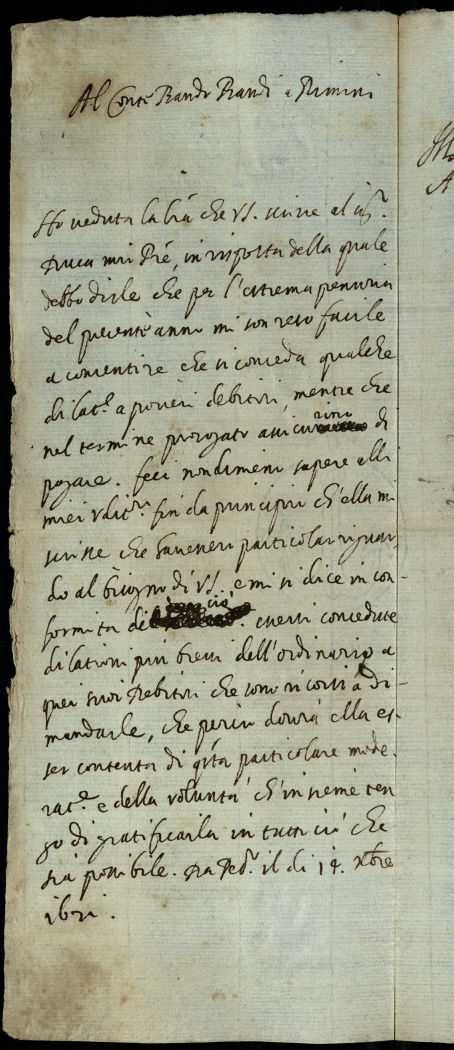 Al Conte Brandi a Rimini
Ho veduta la lrã che VS. scrive al Sig.r
Duca mio Pre, in risposta della quale
debbo dirle che per l'estrema penuria
del presente anno mi son reso facile
a consentire che si conceda qualche
dilat.e a poveri debitori, mentre che
nel termine prorogato assicurino di
pagare. Feci nondimeno sapere alli
miei Udit.ri fin da principio ch'ella mi
scrisse che havessero particolar riguar-
do al bisogno di VS. e mi si dice in con-
formità di ciò essersi concedute
dilationi più brevi dell'ordinario a
quei suoi Debitori che sono ricorsi a di-
mandarle, che però dovrà ella es-
ser contenta di q̃sta particolare mode-
rat.e e della volontà ch'insieme ten
go di gratificarla in tutto ciò che
sia possibile. Da il di 14. Xbre